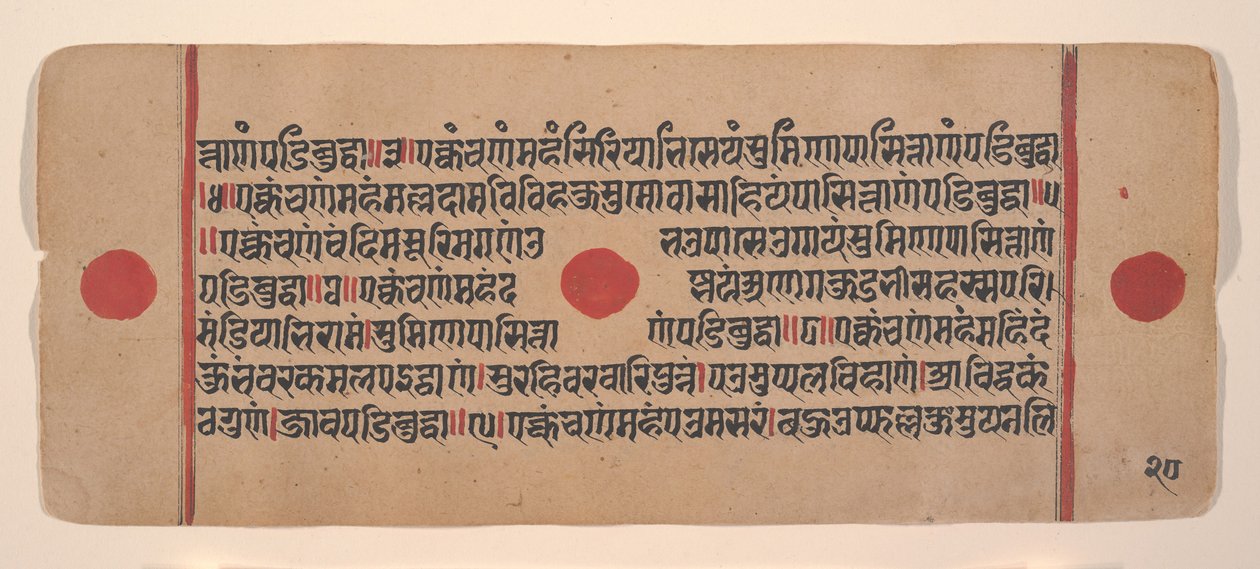 त्ताणंपडिबुद्धा॥३॥एक्कंचणंमहंसिरियाभिसेयंसुमिणेपासित्ताणंपडिबुद्धा
।४॥एक्कंचणंमहंमल्लदामविविहकुसुमोवसोहियंपासित्ताणंपडिबुद्धा॥५
॥एक्कंचणंचंदिमसूरिमगणंउ भउपासेउग्गयंसुमिणेपासित्ताणं
पडिबुद्धा॥६॥एक्कंचणंमहंद ज्झयंअणेगकुडभीसहस्सपरि।
मंडियाभिरामं।सुमिणेपासित्ता णंपडिबुद्धा॥७॥एक्कंचणंमहंमहिंदं
कुंभंवरकमलपइट्ठाणं।सुरहिवरवारिपुन्नं।पउमुप्पलविहाणं।आविद्धकं
वगुणं।जावपडिबुद्धा॥८।एक्कंचणंमहंपउमसरं।बहुउप्फल्लकुमुयनलि
२०